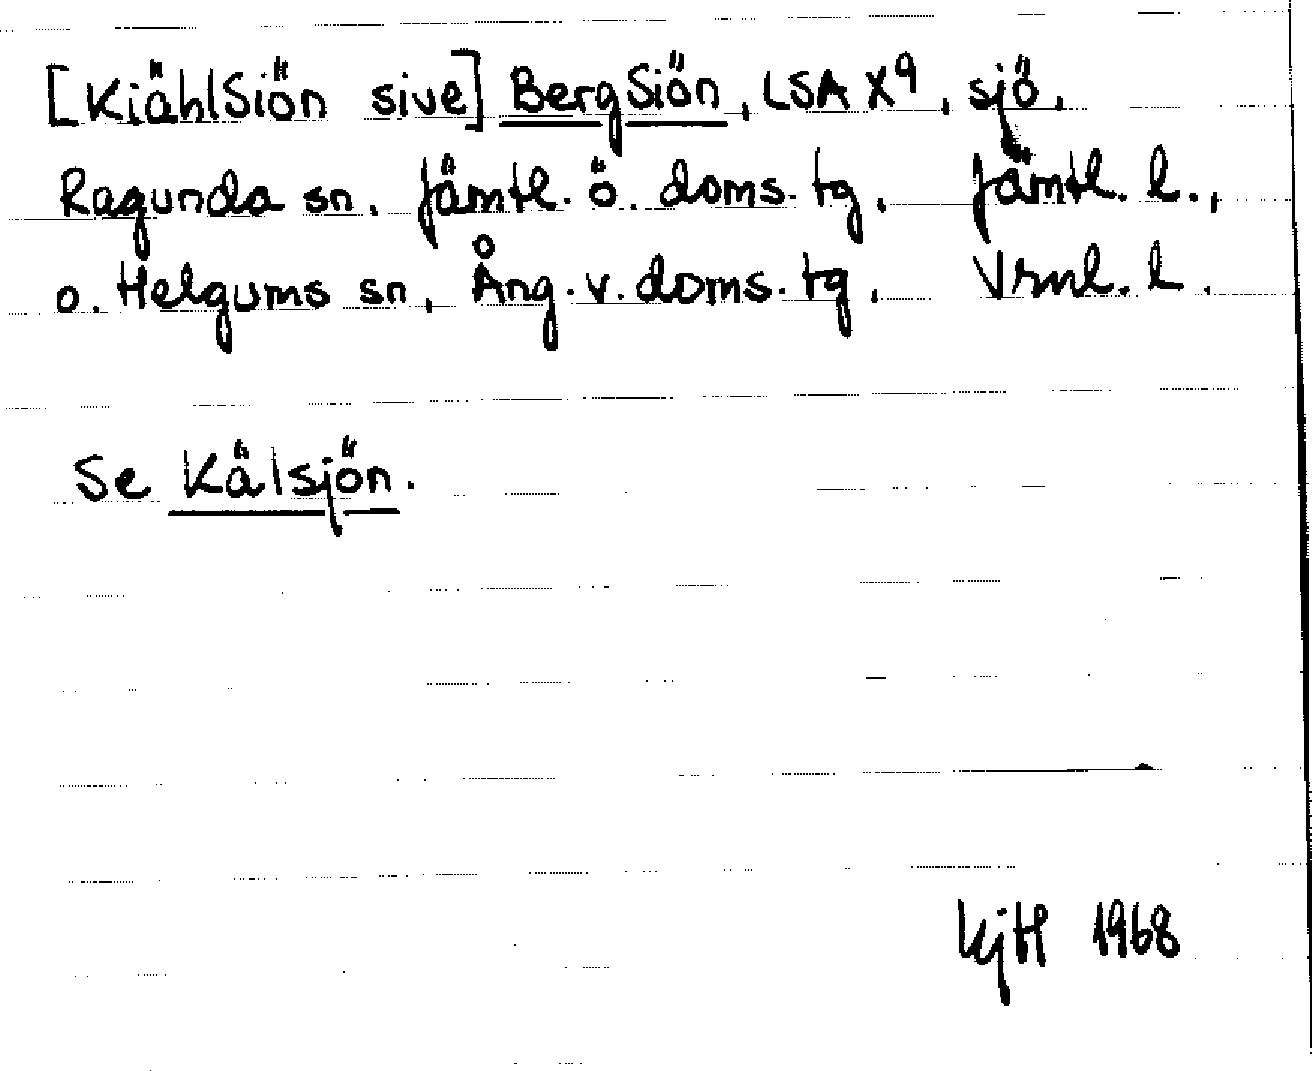 [KiählSiön sive] BergSiön, LSA X9, sjö,
Ragunda sn, Jämtl. ö. doms. tg, Jämtl. l.,
o. Helgums sn, Ång. v. doms. tg, Vrnl. l.
Se Kälsjön.
KjH 1968